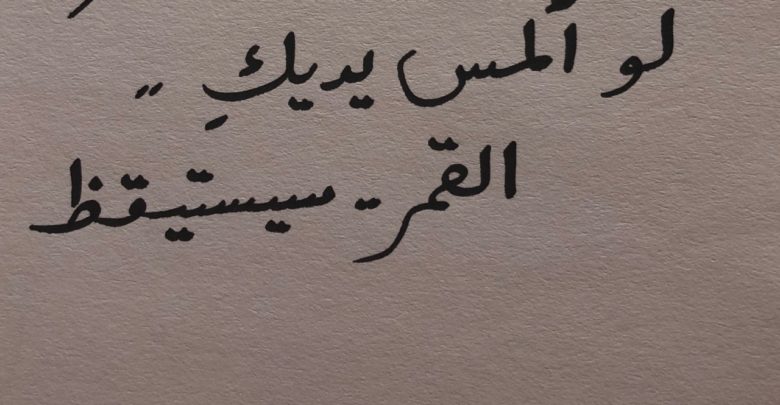 لو ألمس يديكِ ..
القمر - سيستيقظ